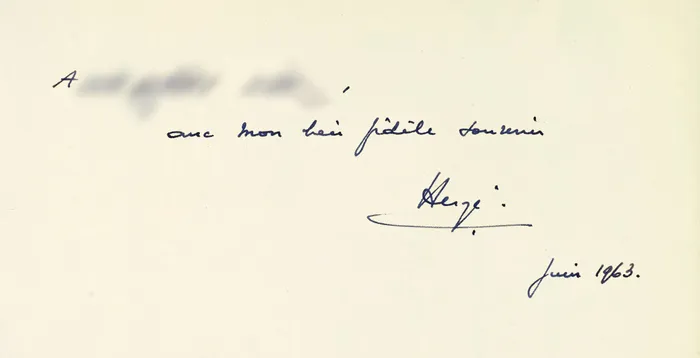 A
avec mon bien fidèle souvenir
Hergé.
Juin 1963.